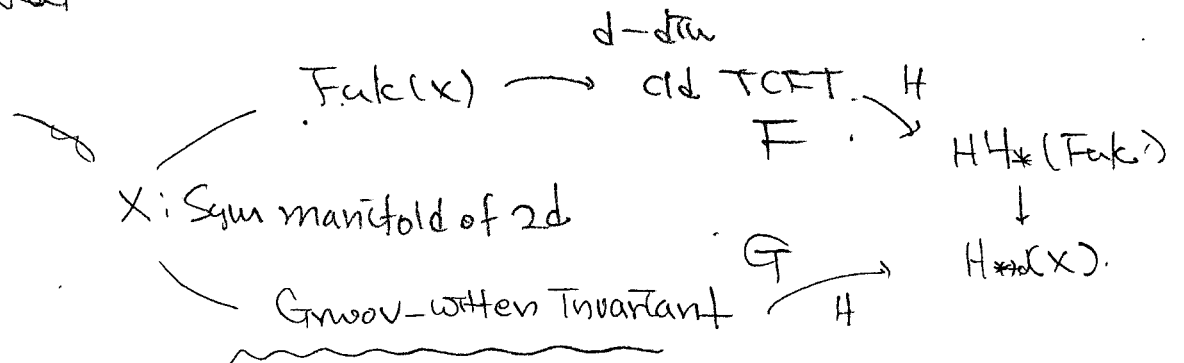 d-dim
Fuk(X) → cld TCFT. H
F
HH*(Fuk)
X: Sym manifold of 2d
↓
G
H*+d(X).
Gromov-Witten Invariant H